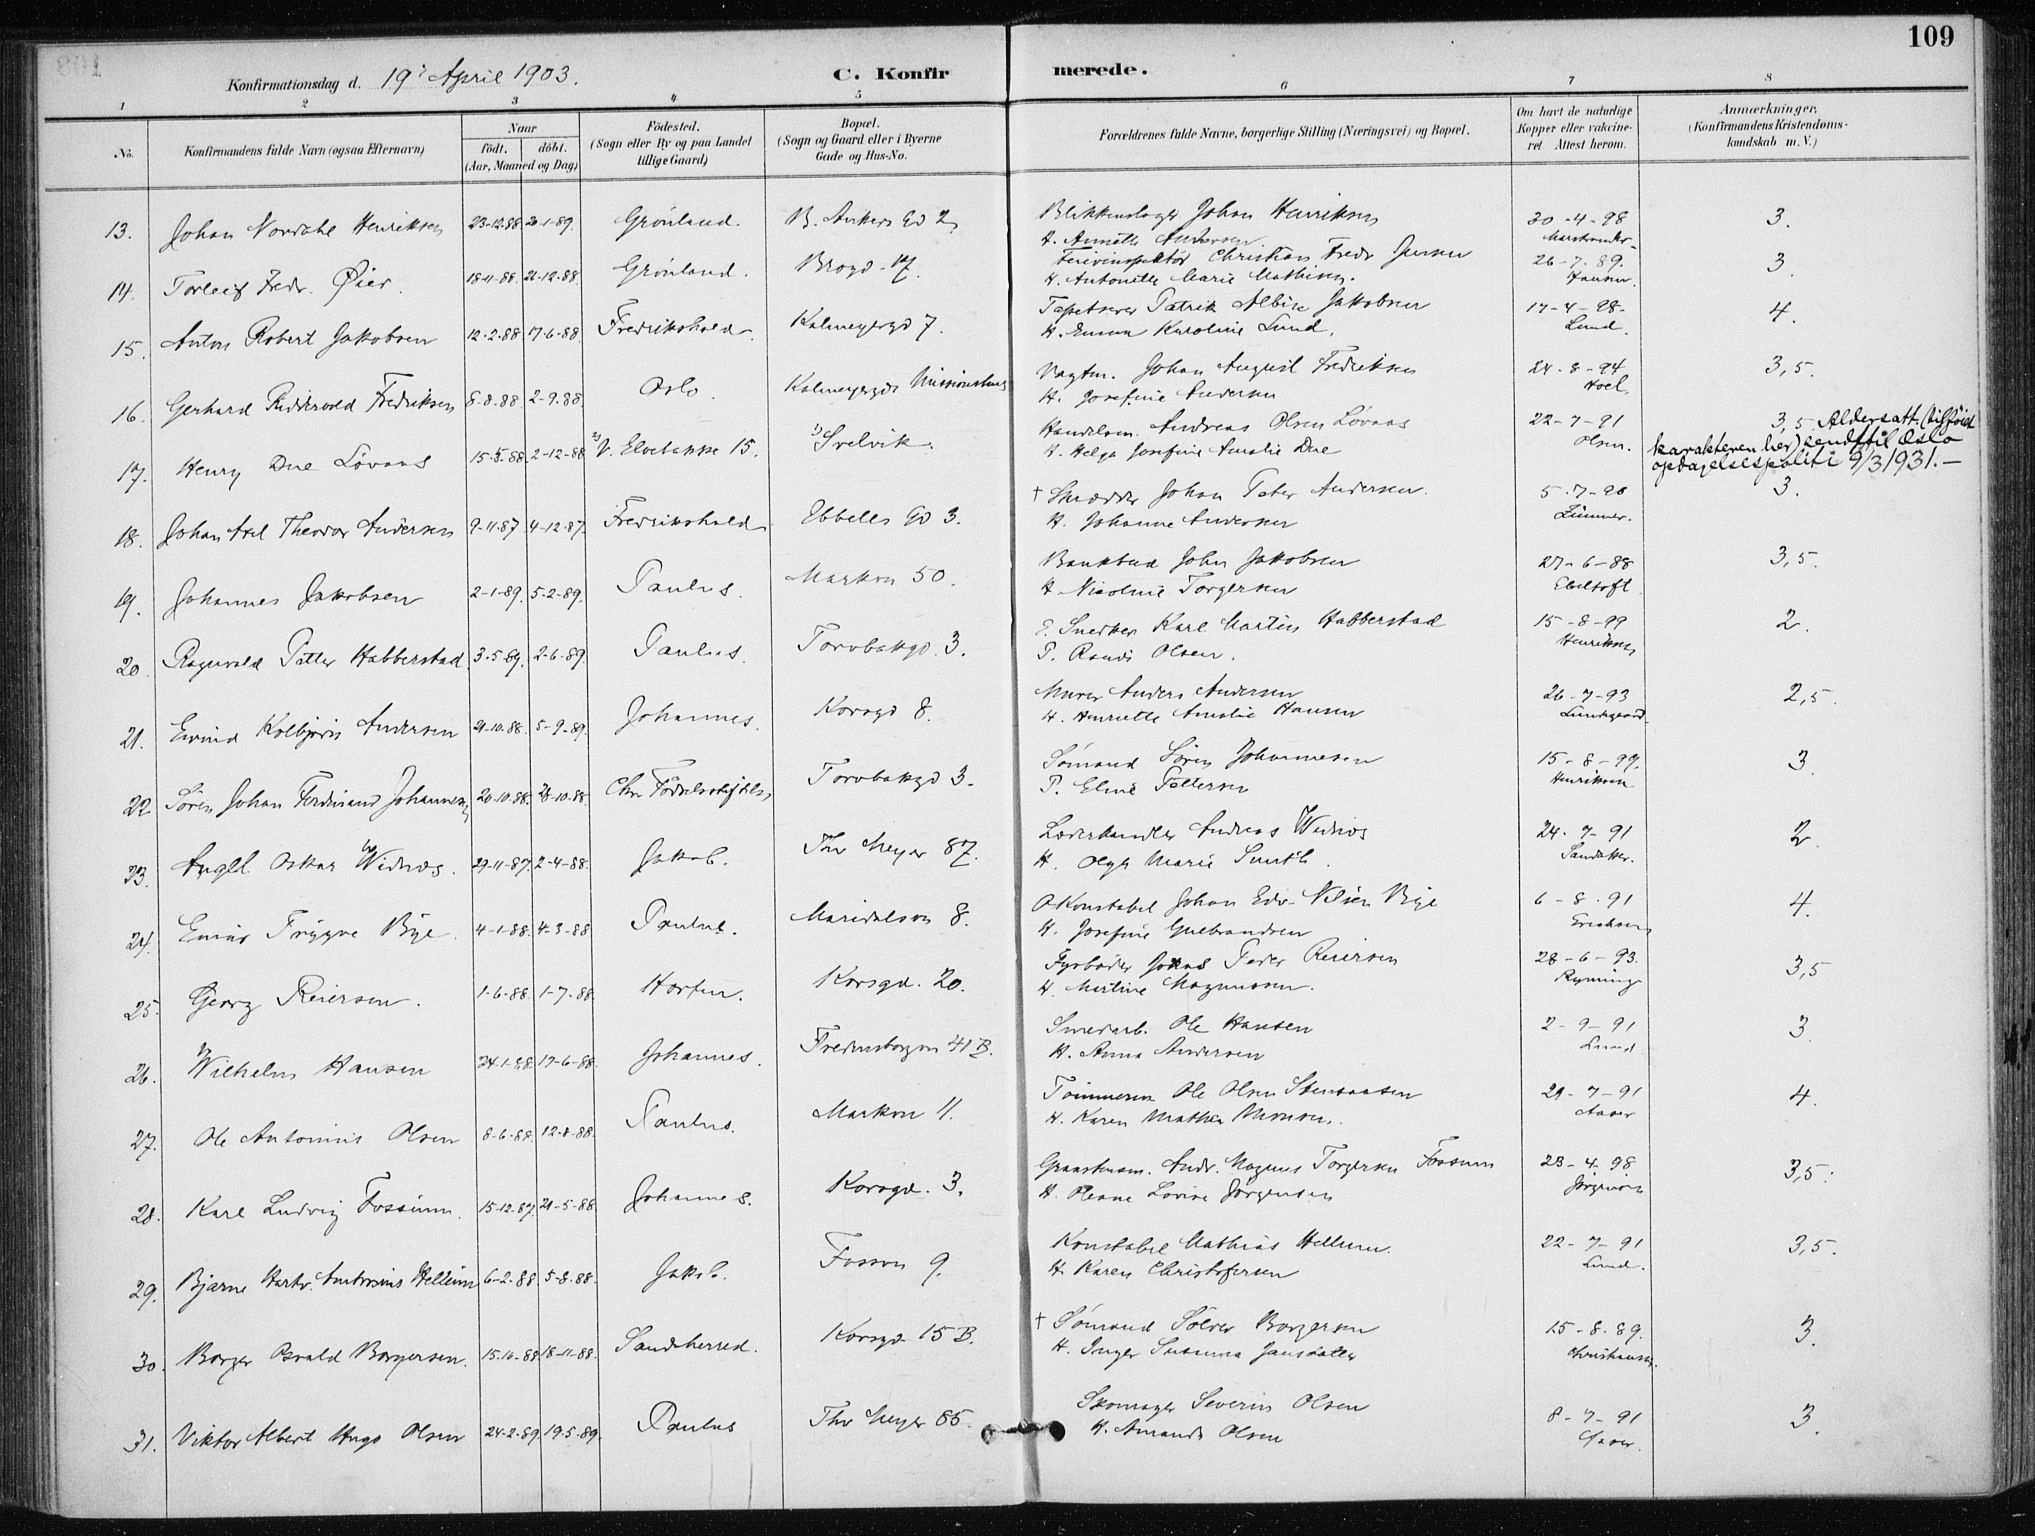 109
Konfirmationsdag d. 19' April 1903. C. Konfirmerede.
1 2 3 4 5 6 7 8
No. Konfirmandens fulde Navn (ogsaa Efternavn) Naar födt. döbt. (Aar, Maaned og Dag) Födested. (Sogn eller By og paa Landet tillige Gaard) Bopæl. (Sogn og Gaard eller i Byerne Gade og Hus-No. Forældrenes fulde Navne, borgerlige Stilling (Næringsvei) og Bopæl. Om havt de naturlige Kopper eller vakcineret Attest herom. Anmærkninger. (Konfirmandens Kristendomskundskab m.V.)
13. Johan Nordahl Henriksen 23-12-88 Grönland. B. Ankers Gd 2 Blikkenslager Johan Henriksen 30-4-98 3.
H. Annette Andersen
14. Torleif Fredr. Øier. 18-11-88 26-12-88 Grönland. Brogd. 17. Christian Fredr Jensen 26-7-89. 3
H. Antonette Marie Mathisen. Hansen.
15. Anton Robert Jakobsen 12-2-88 17-6-88 Fredrikshald Kalmeyergd 7. Tapetserer Patrik Albin Jakobsen 17-4-98- 4.
H. Emma Karoline Lund. Lund.
16. Gerhard Ridderвold Fredriksen 8-8-88 2-9-88. Oslo. Kalmeyergds Missionshus Vagtm. Johan August Fredriksen 24-8-94 3,5.
H. Josefine Andersen Hoel
17. Henry Due Lövaas 15-5-88 2-12-88 2) V. Elvebakke 15. 1) Svelvik. Handelsm. Andreas Olsen Lövaas 22-7-91 3,5 Aldersatt. (tilföiet
H. Helga Josefine Amalie Due Olsen. karakteren her) sendt til Oslo
opdagelsespoliti 9/3 1931.-
18. Johan Axel Theodor Andersen 9-11-87 4-12-87. Fredrikshald Ebbells Gd 3. † Skrædder Johan Peter Andersen. 5-7-90 3.
H. Johanne Andersen Zimmer.
19. Johannes Jakobsen 2-1-89. 5-2-89. Paulus. Markvn 50. Bankbud John Jakobsen 27-6-88 3,5.
H. Nicoline Torgersen Ebeltoft
20. Ragnvald Petter Habberstad 3-5-89. 2-6-89. Paulus. Torvbakgd. 3. E. Snedker Karl Martin Habberstad 15-8-99 2.
P. Randi Olsen. Henriksen
21. Eivind Kolbjörn Andersen 29-10-88. 5-9-89. Johannes. Korsgd 8. Murer Anders Andersen 26-7-93 2,5.
H. Henriette Amalie Hansen Lundegaard
22. Sören Johan Ferdinand Johannesen 20-10-88. 28-10-88. Chr. Födselsstiftelse Torvbakgd 3. Sömand Sören Johannesen 15-8-99. 3.
P. Eline Pettersen Henriksen
23. Angell Oskar Widnæs. 29-11-87. 2-4-88. Jakob. Thv Meyer 87. Læderhandler Andreas Widnæs 24-7-91 2.
H. Olga Marie Smith. Sandaker.
24. Einar Tryggve Bye. 4-1-88. 4-3-88 Paulus. Maridalsvn 8. O.Konstabel Johan Edv. Nilsen Bye 6-8-91 4.
H. Josefine Gulbrandsen Erichsen
25. Georg Reiersen. 1-6-88. 1-7-88. Horten. Korsgd. 20. Fyrböder Jonas Peder Reiersen 28-6-93. 3,5
H. Martine Magnussen. Ryning
26. Wilhelm Hansen 24-1-88. 17-6-88. Johannes. Fredensborgvn 41 B. Smedarb. Ole Hansen 2-9-91 3.
H. Anna Andersen Lund
27. Ole Antonius Olsen 8-6-88. 12-8-88. Paulus. Markvn 11. Tömmerm Ole Olsen Stensaasen 29-7-91 4.
H. Karen Mathea Aaser
28. Karl Ludvig Fossum. 15-12-87. 21-5-88. Johannes. Korsgd. 3. Andr. Magnus Torgersen Fossum 23-4-98 3,5.
H. Oleane Lovise Jörgensen Jörgensen
29. Bjarne Hartv. Ambrosius Hellum 6-2-88 5-8-88. Jakob. Fossvn 9. Konstabel Mathias Hellum. 22-7-91 3,5.
H. Karen Christofersen Lund.
30. Borger Osvald Borgersen. 15-10-88 18-11-88. Sandeherred. Korsgd 15 B. † Sömand Sölver Borgersen 15-8-89. 3.
H. Inger Susanna Jansdatter Christiansen.
31. Viktor Albert Hugo Olsen 24-2-89. 19-5-89. Paulus Thv Meyer 85. Skomager Severin Olsen 8-7-91 3.
H. Amanda Olsen Aaser.